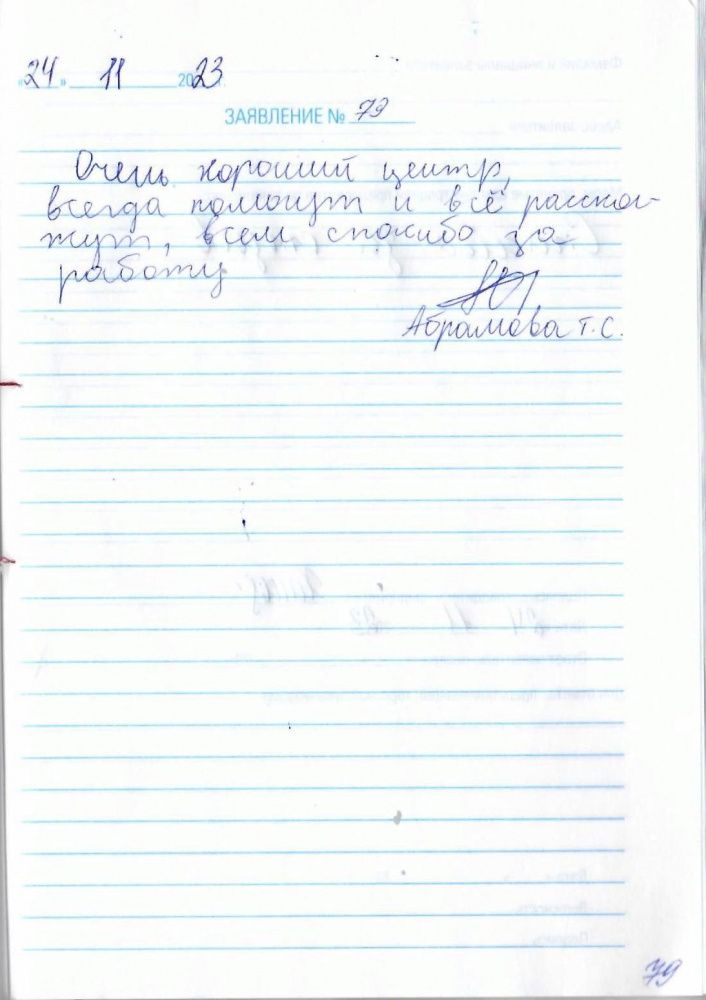 «24» 11 2023 г.
ЗАЯВЛЕНИЕ № 79
Очень хороший центр,
всегда помогут и всё расска-
жут, всем спасибо за
работу
Абрамова Т.С.
79